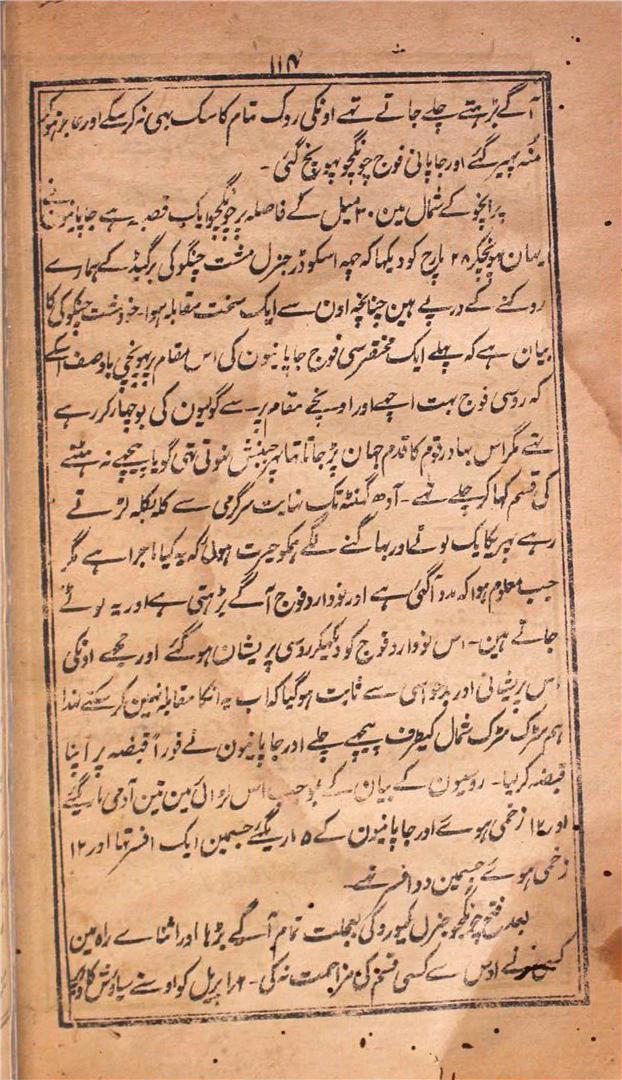 ۱۱۴
آگے بڑہتے چلے جاتے تہے اونکی روک تہام کاسک بہی نہ کرسکے اور عاجز ہوکر
مُنہ پہیر گئے اور جاپانی فوج چونگچو پہونچ گئی ۔
پرانچو کے شمال مین ۳۰ میل کے فاصلہ پر چونگچو ایک قصبہ ہے جاپانیون نے
یہان پہونچکر ۲۸ مارچ کو دیکہا کہ چہہ اسکوڈر جنرل مشت چنگو کی برگیڈ کے ہمارے
روکنے کے درپے ہین چنانچہ اون سے ایک سخت مقابلہ ہوا۔ خود مشت چنگو کی کا
بیان ہے کہ پہلے ایک مختصر سی فوج جاپانیون کی اس مقام پر پہونچی باوصف اسکے
کہ روسی فوج بہت اچہے اور اونچے مقام پر سے گولیون کی بوچہار کر رہے
تہے مگر اس بہادر قوم کا قدم جہان پڑ جاتا تہا پہر جنبش نہوتی تہی گویا پیچہے نہ ہٹنے
کی قسم کہا کر چلے تہے ۔ آدہ گہنٹہ تک نہایت سرگرمی سے کلہ بکلہ لڑتے
رہے پہر یکایک لوٹے اور بہاگنے لگے ہمکو حیرت ہوئی کہ یہ کیا ماجرا ہے مگر
جب معلوم ہوا کہ مدد آگئی ہے اور نووارد فوج آگے بڑہتی ہے اور یہ لوٹے
جاتے ہین ۔ اس نووارد فوج کو دیکہکر روسی پریشان ہوگئے اور مجہے اونکی
اس پریشانی اور بدحواسی سے ثابت ہوگیا کہ اب یہ انکا مقابلہ نہین کرسکتے لہذا
ہم سڑک سڑک شمال کیطرف پیچہے چلے اور جاپانیون نے فوراً قبضہ پر اپنا
قبضہ کرلیا ۔ روسیون کے بیان کے بموجب اس لڑائی مین تین آدمی مارے گئے
اور ۱۷ زخمی ہوئے اور جاپانیون کے ۵ مارے گئے جسمین ایک افسر تہا اور ۱۲
زخمی ہوئے جسمین دو افسر تہے ۔
بعد فتح چونگچو جنرل کیوروکی بعجلت تمام آگے بڑہا اور اثنائے راہ مین
کسی نے اوس سے کسی قسم کی مزاحمت نہ کی ۔ ۴ اپریل کو اوسنے سیاؤش کا